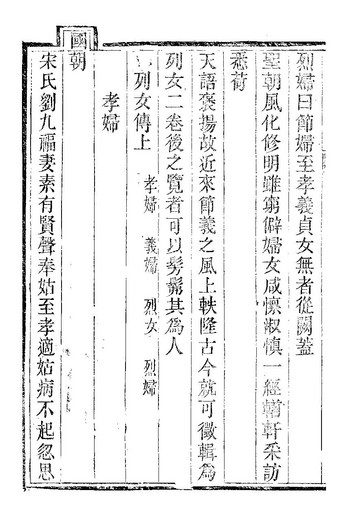 烈婦曰節婦至孝義貞女無者從闕蓋
聖朝風化修明雖窮僻婦女咸懷淑慎一經輶軒采訪
悉荷
天語褒揚故近來節義之風上軼隆古今就可徵輯為
列女二卷後之覽者可以髣髴其為人
列女傳上 孝婦 義婦 烈女 烈婦
孝婦
國朝
宋氏劉九福妻素有賢聲奉姑至孝適姑病不起忽思